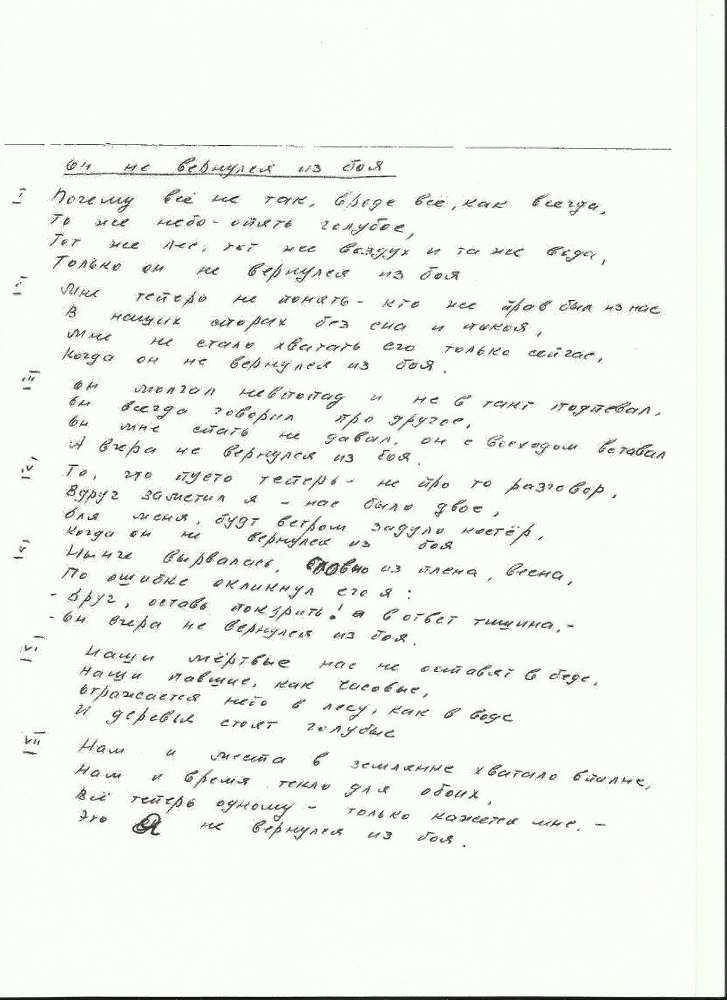 Он не вернулся из боя
I Почему всё не так, вроде всё, как всегда,
То же небо - опять голубое,
Тот же лес, тот же воздух и та же вода,
Только он не вернулся из боя
II Мне теперь не понять - кто же прав был из нас
В наших спорах без сна и покоя,
Мне не стало хватать его только сейчас,
Когда он не вернулся из боя.
III Он молчал невпопад и не в такт подпевал,
Он всегда говорил про другое,
Он мне спать не давал, он с восходом вставал
А вчера не вернулся из боя.
IV То, что пусто теперь - не про то разговор,
Вдруг заметил я - нас было двое,
Для меня, будт ветром задуло костёр,
Когда он не вернулся из боя
V Нынче вырвалась, словно из плена, весна,
По ошибке окликнул его я:
- Друг, оставь покурить! а в ответ тишина, -
- Он вчера не вернулся из боя.
VI Наши мёртвые нас не оставят в беде,
Наши павшие, как часовые,
Отражается небо в лесу, как в воде
И деревья стоят голубые
VII Нам и места в землянке хватало вполне,
Нам и время текло для обоих,
Всё теперь одному - только кажется мне, -
Это я не вернулся из боя.